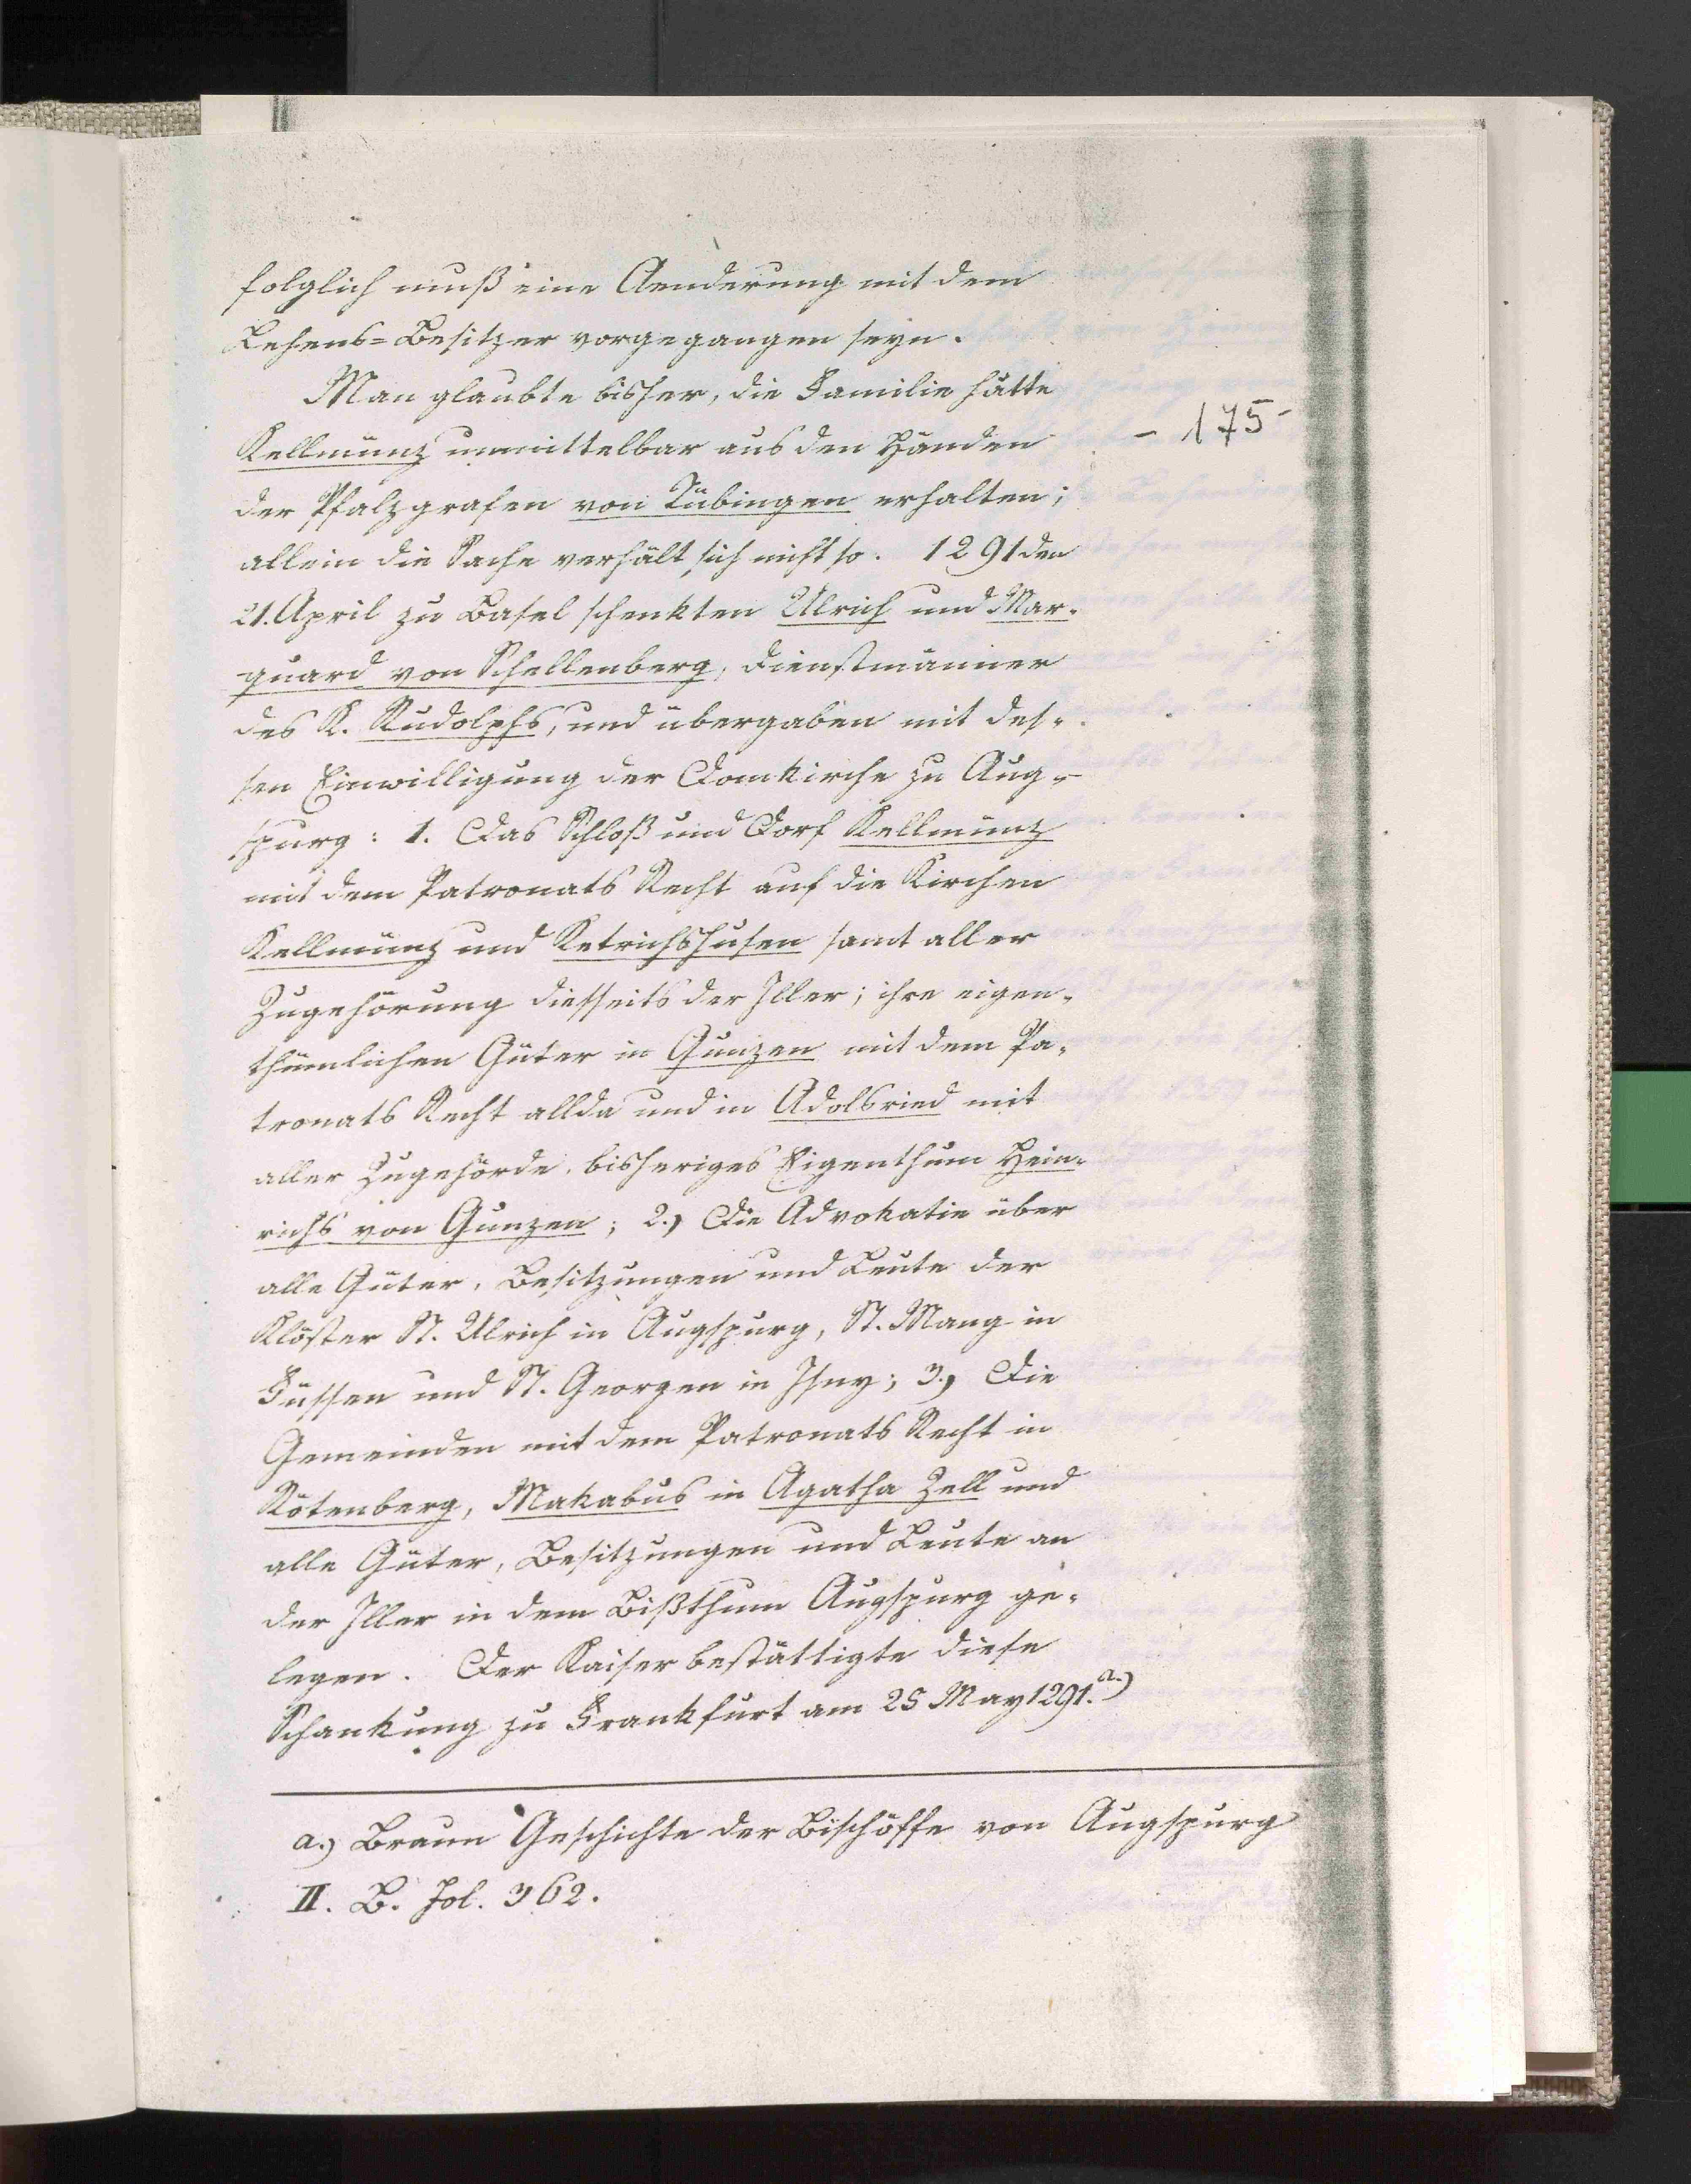 folglich muß eine Aenderung mit dem
Lehens=Besitzer vorgegangen seyn.
Man glaubte bisher, die Familie hätte
Kellmünz unmittelbar aus den Händen
- 175 -
der Pfalzgrafen von Tübingen erhalten;
allein die Sache verhält sich nicht so. 1291 den
21. April zu Basel schenkten Ulrich und Mar-
quard von Schellenberg, Dienstmänner
des K. Rudolphs, und übergaben mit des-
sen Einwilligung der Domkirche zu Aug-
spurg: 1. Das Schloß und Dorf Kellmünz
mit dem Patronats Recht auf die Kirchen
Kellmünz und Ketrichshusen samt aller
Zugehörung diesseits der Iller; ihre eigen-
thümlichen Güter in Gunzen mit dem Pa-
tronats Recht allda und in Adolsried mit
aller Zugehörde, bisheriges Eigenthum Hein-
richs von Gunzen; 2.) Die Advokatie über
alle Güter, Besitzungen und Leute der
Klöster St. Ulrich in Augspurg, St. Mang in
Füssen und St. Georgen in Isny; 3.) Die
Gemeinden mit dem Patronats Recht in
Rötenberg, Makabus in Agatha Zell und
alle Güter, Besitzungen und Leute an
der Iller in dem Bißthum Augspurg ge-
legen. Der Kaiser bestättigte diese
Schankung zu Frankfurt am 25 May 1291. a.)
a.) Braun Geschichte der Bischöffe von Augspurg
II. B. Fol. 362.